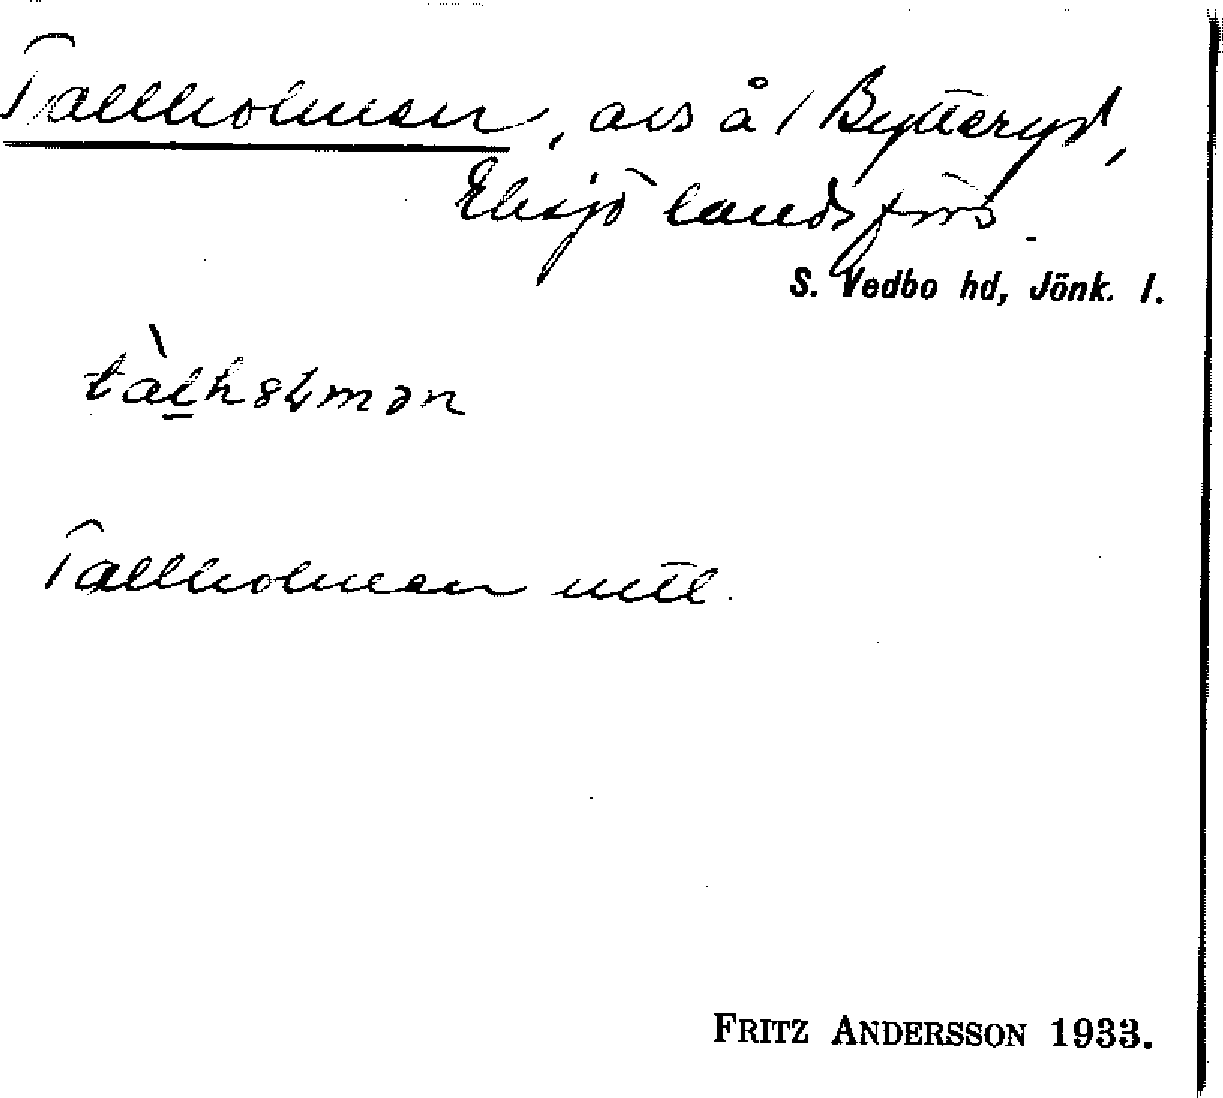 Tallholmen, avs å 1 Bytteryd,
Eksjö landsförs.
S. Vedbo hd, Jönk. l.
Tallholmen mtl.
FRITZ ANDERSSON 1933.